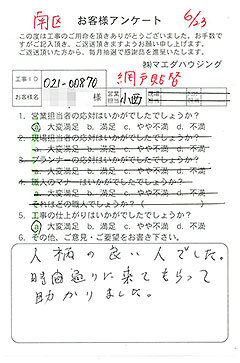 南区
お客様アンケート
6/23
この度は工事のご用命を頂きありがとうございました。お手数で
すがご記入頂き、ご返送頂きますようお願い申し上げます。
ご返送頂いた方から、毎月抽選で感謝品を進呈いたします。
㈱マエダハウジング
工事ID 021-00870 網戸貼替
お客様名 営業担当 小西
1. 営業担当者の応対はいかがでしたでしょうか?
a. 大変満足 b. 満足 c. やや不満 d. 不満
2. 現場担当者の応対はいかがでしたでしょうか?
a. 大変満足 b. 満足 c. やや不満 d. 不満
3. プランナーの応対はいかがでしたでしょうか?
a. 大変満足 b. 満足 c. やや不満 d. 不満
4. 職人のマナーはいかがでしたでしょうか?
a. 大変満足 b. 満足 c. やや不満 d. 不満
それはどの職人でしょうか?( )
5. 工事の仕上がりはいかがでしたでしょうか?
a. 大変満足 b. 満足 c. やや不満 d. 不満
6. その他、ご意見・ご要望をお書き下さい。
人柄の良い人でした。
時間通りに来てもらって
助かりました。